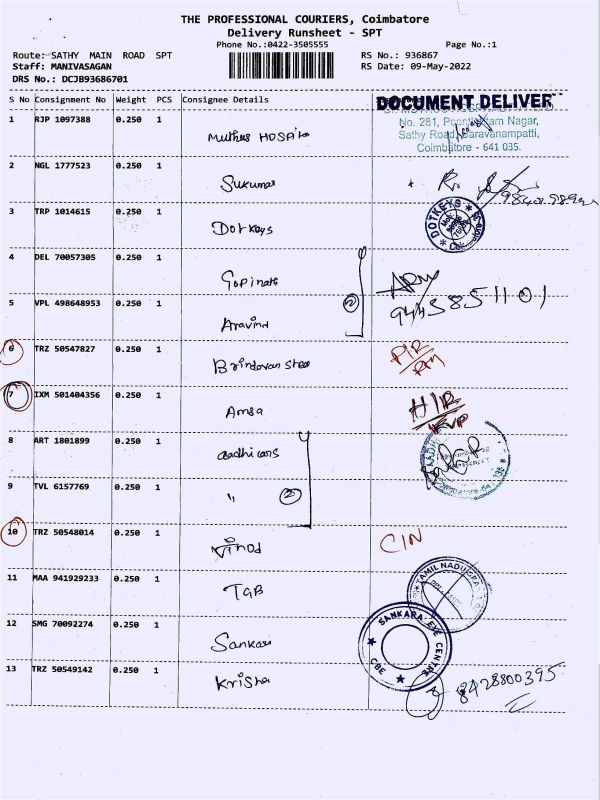 THE PROFESSIONAL COURIERS, Coimbatore
Delivery Runsheet - SPT
Phone No.:0422-3505555 Page No.:1
Route: SATHY MAIN ROAD SPT RS No.: 936867
Staff: MANIVASAGAN RS Date: 09-May-2022
DRS No.: DCJB93686701
S No Consignment No Weight PCS Consignee Details
DOCUMENT DELIVER
1 RJP 1097388 0.250 1
No. 281, Nagar,
Sathy Road, Saravanampatti,
Coimbatore - 641 035.
2 NGL 1777523 0.250 1 Sukumar
3 TRP 1014615 0.250 1 Dotkeys
DOTKEYS
4 DEL 70057305 0.250 1 Gopinath
5 VPL 498648953 0.250 1 Aravind 2 9443851101
6 TRZ 50547827 0.250 1 Brindavan
7 IXM 501404356 0.250 1 Amsa
8 ART 1801899 0.250 1 aadhi cars
9 TVL 6157769 0.250 1 " 2
10 TRZ 50548014 0.250 1 Vinod CIN
11 MAA 941929233 0.250 1 TGB
TAMIL NADU
12 SMG 70092274 0.250 1 Sankara
SANKARA EYE CENTRE CBE
13 TRZ 50549142 0.250 1 Krisha 8428800395